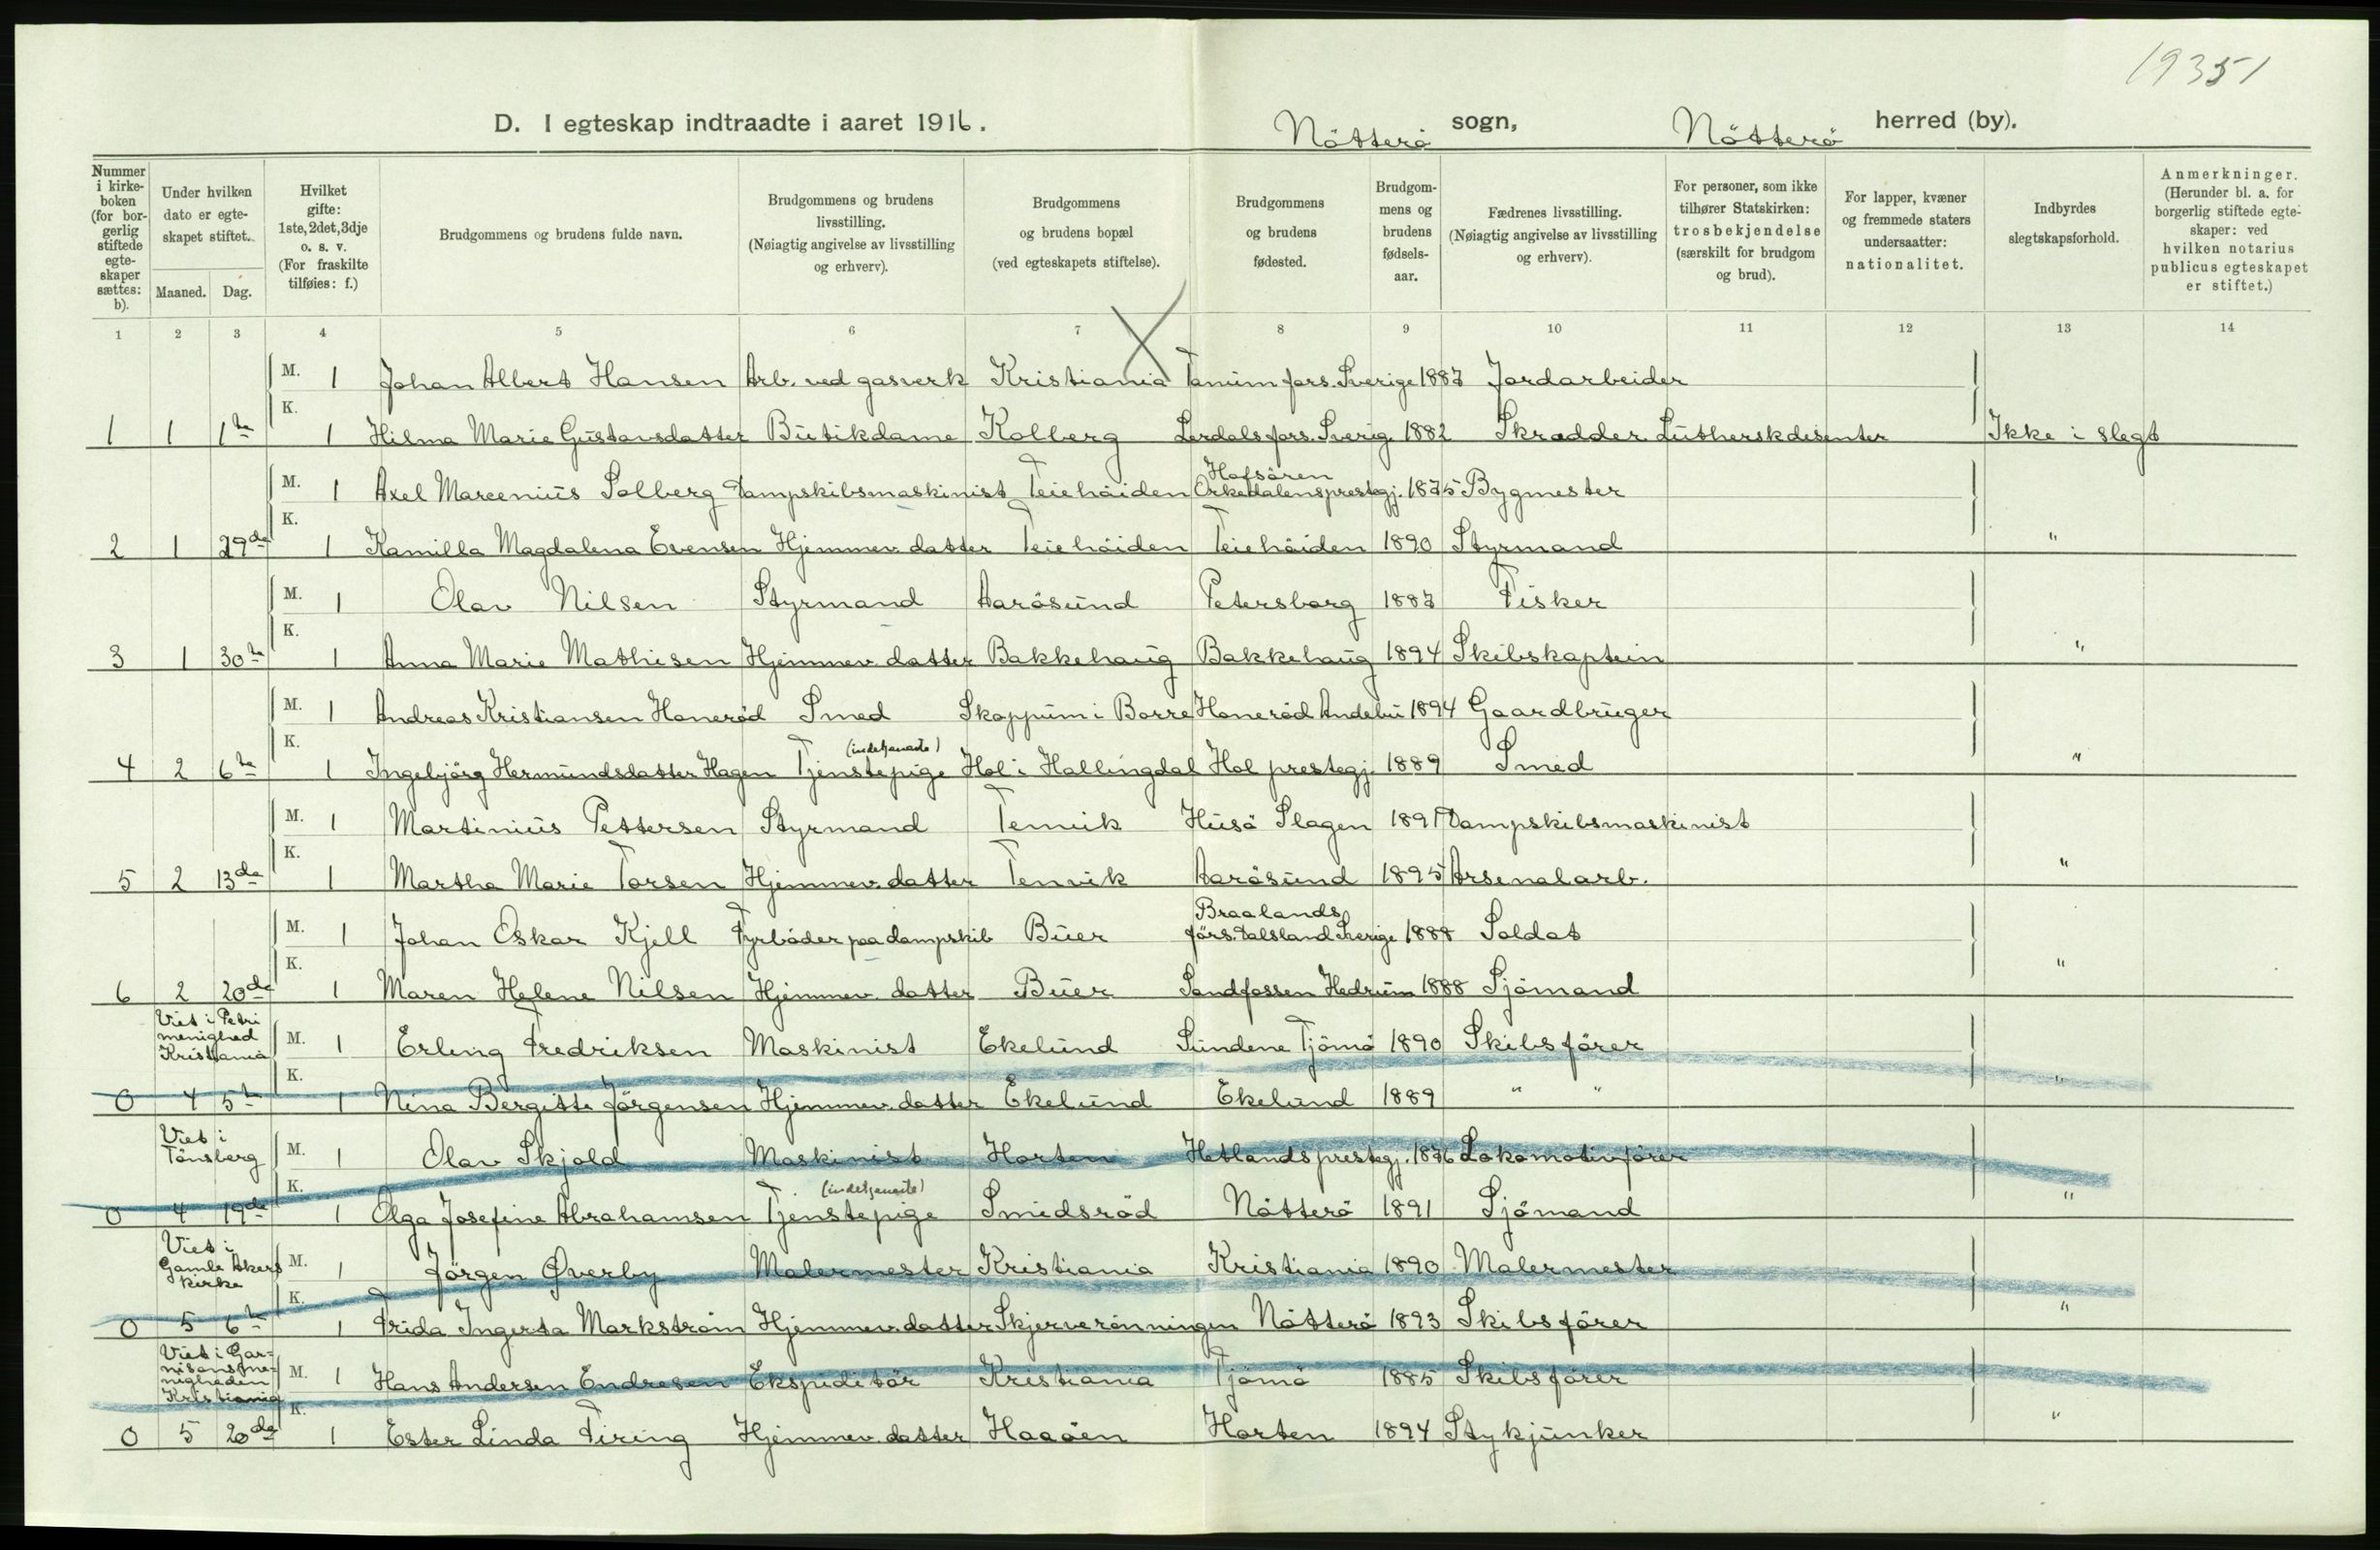 19351
D. I egteskap indtraadte i aaret 1916. Nötterö sogn, Nötterö herred (by).
Nummer i kirke-boken (for bor-gerlig stiftede egte-skaper sættes: b).
Under hvilken dato er egte-skapet stiftet.
Maaned. Dag.
Hvilket gifte: 1ste, 2det, 3dje o. s. v. (For fraskilte tilføies: f.)
Brudgommens og brudens fulde navn.
Brudgommens og brudens livsstilling. (Nøiagtig angivelse av livsstilling og erhverv).
Brudgommens og brudens bopæl (ved egteskapets stiftelse).
Brudgommens og brudens fødested.
Brudgom-mens og brudens fødsels-aar.
Fædrenes livsstilling. (Nøiagtig angivelse av livsstilling og erhverv).
For personer, som ikke tilhører Statskirken: trosbekjendelse (særskilt for brudgom og brud).
For lapper, kvæner og fremmede staters undersaatter: nationalitet.
Indbyrdes slegtskapsforhold.
Anmerkninger. (Herunder bl. a. for borgerlig stiftede egte-skaper: ved hvilken notarius publicus egteskapet er stiftet.)
1 2 3 4 5 6 7 8 9 10 11 12 13 14
M. 1 Johan Albert Hansen Arb. ved gasverk Kristiania Tanum fors. Sverige 1887 Jordarbeider
1 1 1te K. 1 Hilma Marie Gustavsdatter Butikdame Kolberg Lerdals fors. Sverig. 1882 Skrædder Lutherskdisenter Ikke i slegt
M. 1 Axel Marcenius Solberg Dampskibsmaskinist Teiehöiden Hofsören Orkedalensprestegj. 1875 Bygmester
2 1 29de K. 1 Kamilla Magdalena Evensen Hjemmev. datter Teiehöiden Teiehöiden 1890 Styrmand "
M. 1 Olav Nilsen Styrmand Aarösund Petersborg 1887 Fisker
3 1 30te K. 1 Anna Marie Mathisen Hjemmev. datter Bakkehaug Bakkehaug 1894 Skibskaptein "
M. 1 Andreas Kristiansen Honeröd Smed Skoppum i Borre Honeröd Andebu 1894 Gaardbruger
4 2 6te K. 1 Ingebjörg Hermundsdatter Hagen Tjenstepige (indetjeneste) Hol i Hallingdal Hol prestegj. 1889 Smed "
M. 1 Martinius Pettersen Styrmand Tenvik Husö Slagen 1891 Dampskibsmaskinist
5 2 13de K. 1 Martha Marie Torsen Hjemmev. datter Tenvik Aarösund 1895 Arsenalarb. "
M. 1 Johan Oskar Kjell Fyrböder paa dampskib Buer Braalands förs. Dalsland Sverige 1888 Soldat
6 2 20de K. 1 Maren Helene Nilsen Hjemmev. datter Buer Sandfossen Hedrum 1888 Sjömand "
Viet i Petri menighed Kristiania M. 1 Erling Fredriksen Maskinist Ekelund Sundene Tjömö 1890 Skibsförer
0 4 5te K. 1 Nina Bergitte Jörgensen Hjemmev. datter Ekelund Ekelund 1889 " " "
Viet i Tönsberg M. 1 Olav Skjold Maskinist Horten Hetlands prestegj. 1876 Lokomotivförer
0 4 19de K. 1 Olga Josefine Abrahamsen Tjenstepige (indetjeneste) Smidsröd Nötterö 1891 Sjömand "
Viet i Gamle Akers kirke M. 1 Jörgen Øverby Malermester Kristiania Kristiania 1890 Malermester
0 5 6te K. 1 Frida Ingerta Markström Hjemmev. datter Skjerverönningen Nötterö 1893 Skibsförer "
Viet i Gar-nisonsme-nigheden Kristiania M. 1 Hans Andersen Endresen Ekspiditör Kristiania Tjömö 1885 Skibsförer
0 5 20de K. 1 Ester Linda Firing Hjemmev. datter Haaöen Horten 1894 Stykjunker "